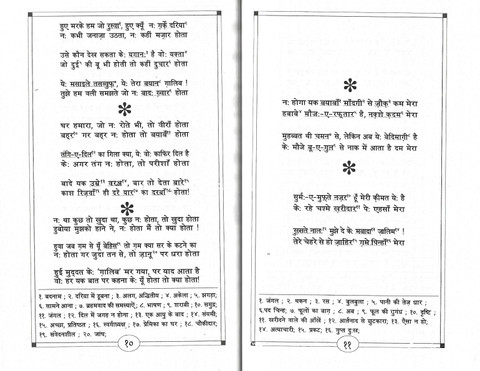 हुए मरके हम जो रुस्वा', हुए क्यूँ न: ग़र्क़े दरिया'
न: कभी जनाज़ा उठता, न: कहीं मज़ार होता
उसे कौन देख सकता के: यगान:' है वो: यक्ता'
जो दुई' की बू भी होती तो कहीं दुचार' होता
ये: मसाइले तसव्वुफ़', ये: तेरा बयान' ग़ालिब !
तुझे हम वली समझते जो न: बाद: ख़्वार' होता
घर हमारा, जो न: रोते भी, तो वीराँ होता
बह्र'° गर बह्र न: होता तो बयाबाँ'' होता
तंगि-ए-दिल का गिला क्या, ये: वो: काफ़िर दिल है
के: अगर तंग न: होता, तो परीशाँ होता
बादे यक उम्रे वरअ', बार तो देता बारे
काश रिज़्वाँ ही दरे यार का दरबाँ होता!
न: था कुछ तो ख़ुदा था, कुछ न: होता, तो ख़ुदा होता
डुबोया मुझको होने ने, न: होता मैं तो क्या होता
हुवा जब ग़म से यूँ बेहिस'' तो ग़म क्या सर के कटने का
न: होता गर जुदा तन से, तो ज़ानू'° पर धरा होता
हुई मुद्दत के: 'ग़ालिब' मर गया, पर याद आता है
वो: हर यक बात पर कहना के: यूँ होता तो क्या होता!
१. बदनाम ; २. दरिया में डूबना ; ३. अलग, अद्वितीय ; ४. अकेला ; ५. झगड़ा,
६. सामने आना ; ७. ब्रह्मवाद की समस्याएँ ; ८. भाषण ; ९. शराबी ; १०. समुद्र,
११. जंगल ; १२. दिल में जगह न होना ; १३. एक आयु के बाद ; १४. संयमी ;
१५. अच्छा, प्रतिष्ठित ; १६. स्वर्गाध्यक्ष ; १७. प्रेमिका का घर ; १८. चौकीदार,
१९. संवेदनशील ; २०. जांघ;
१०
न: होगा यक बयाबाँ' माँदगी' से ज़ौक़' कम मेरा
हबाबे' मौज:-ए-रफ़्तार' है, नक़्शे क़दम' मेरा
मुहब्बत थी चमन' से, लेकिन अब ये: बेदिमाग़ी' है
के: मौजे बू-ए-गुल' से नाक में आता है दम मेरा
सुर्म:-ए-मुफ़्ते नज़र'° हूँ मेरी क़ीमत ये: है
के: रहे चश्मे ख़रीदार'' पे: एहसाँ मेरा
रुख़्सते नाल: मुझे दे के: मबादा ज़ालिम !
तेरे चेहरे से हो ज़ाहिर ग़मे पिन्हाँ मेरा
१. जंगल ; २. थकन ; ३. रस ; ४. बुलबुला ; ५. पानी की तेज़ धार ;
६.पद चिन्ह ; ७. फूलों का बाग़ ; ८. अब ; ९. फूल की सुगंध ; १०. दृष्टि ;
११. ख़रीदने वाले की आँखें ; १२. आर्तनाद से छुटकारा ; १३. ऐसा न हो;
१४. अत्याचारी ; १५. प्रकट; १६. गुप्त दु:ख;
११